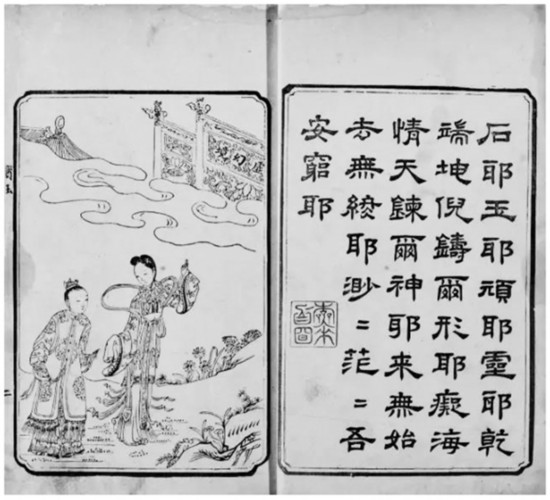 石耶玉耶頑耶靈耶乾
端坤倪鑄爾形耶癡海
情天鍊爾神耶来無始
去無終耶渺〻茫〻吾
安窮耶
二